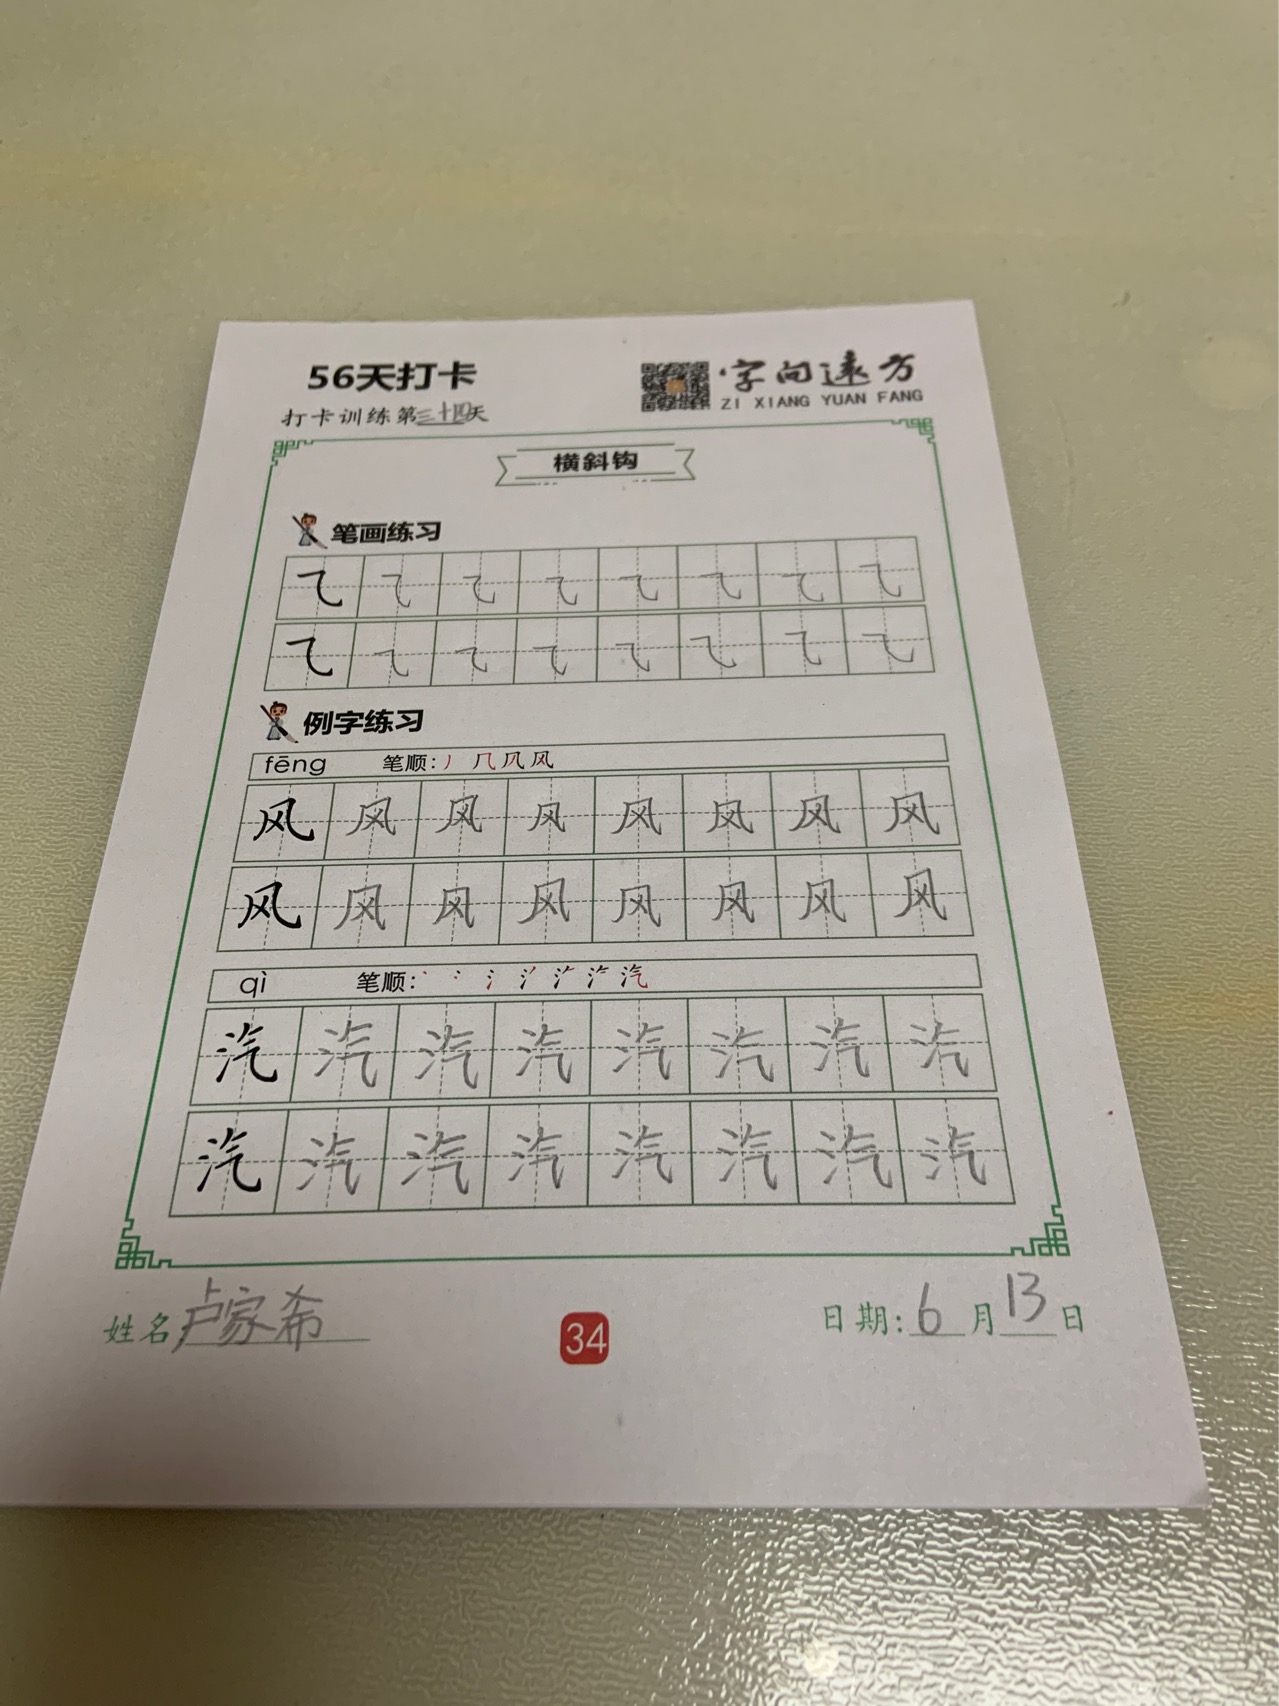 56天打卡
字向远方
ZI XIANG YUAN FANG
打卡训练第三十四天
横斜钩
笔画练习
乁 乁 乁 乁 乁 乁 乁 乁
乁 乁 乁 乁 乁 乁 乁 乁
例字练习
fēng 笔顺: 丿 几 凤 风
风 风 风 风 风 风 风 风
风 风 风 风 风 风 风 风
qì 笔顺: 汽
汽 汽 汽 汽 汽 汽 汽 汽
汽 汽 汽 汽 汽 汽 汽 汽
姓名 卢家希
34
日期: 6 月 13 日